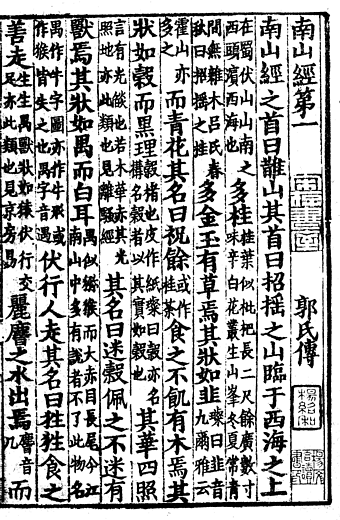 南山經第一　郭氏傳
南山經之首曰䧿山其首曰招搖之山臨于西海之上
在蜀伏山山南之
西頭濱西海也
多桂
桂葉似枇杷長二尺餘廣數寸
味辛白花叢生山峯冬夏常青
間無雜木呂氏春
秋曰招搖之桂
多金玉有草焉其狀如韭
璨曰韭音
九爾雅云
霍山亦
多之
而青花其名曰祝餘
或作
桂荼
食之不飢有木焉其
狀如榖而黑理
榖楮也皮作紙璨曰榖亦
名構名榖者以其實如榖也
其華四照
言有光燄也若木華赤其光
照地亦此類也見離騷經
其名曰迷榖佩之不迷有
獸焉其狀如禺而白耳
禺似獼猴而大赤目長尾今江
南山中多有說者不了此物名
禺作牛字圖亦作牛形或
作猴皆失之也禺字音遇
伏行人走其名曰狌狌食之
善走
生生禺獸狀如猿伏行交
足亦此類也見京房易
麗麂之水出焉
麂音
几
而